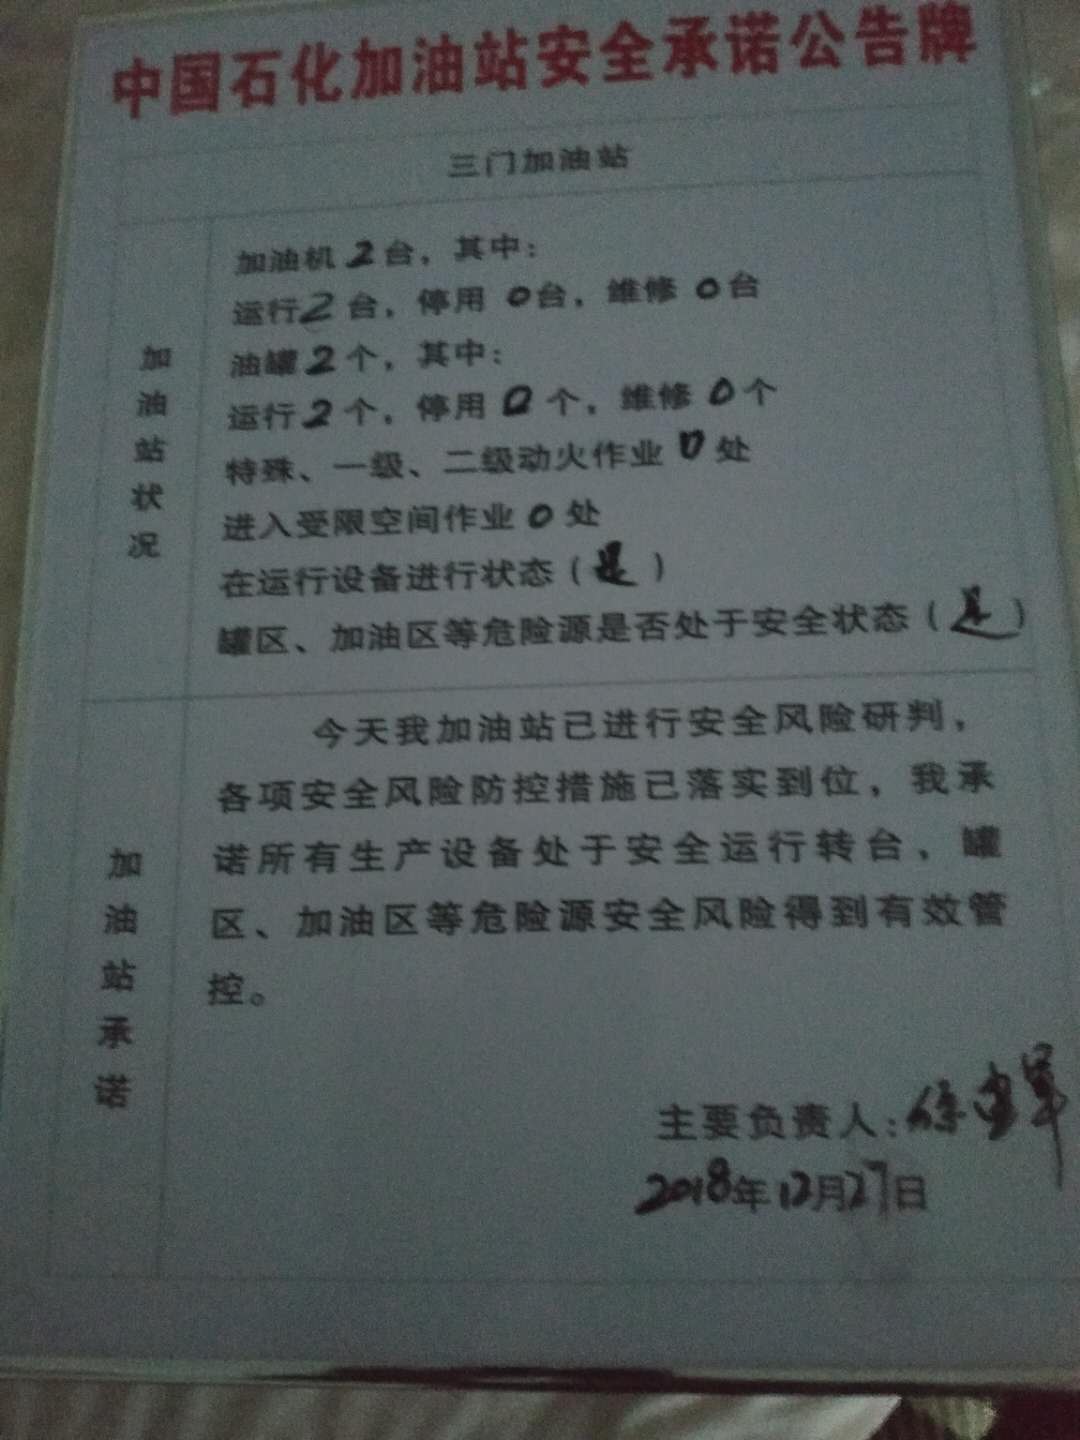 中国石化加油站安全承诺公告牌
三门加油站
加油站状况
加油机2台，其中：
运行2台，停用0台，维修0台
油罐2个，其中：
运行2个，停用0个，维修0个
特殊、一级、二级动火作业0处
进入受限空间作业0处
在运行设备进行状态（是）
罐区、加油区等危险源是否处于安全状态（是）
加油站承诺
今天我加油站已进行安全风险研判，
各项安全风险防控措施已落实到位，我承
诺所有生产设备处于安全运行转台，罐
区、加油区等危险源安全风险得到有效管
控。
主要负责人：徐建军
2018年12月27日